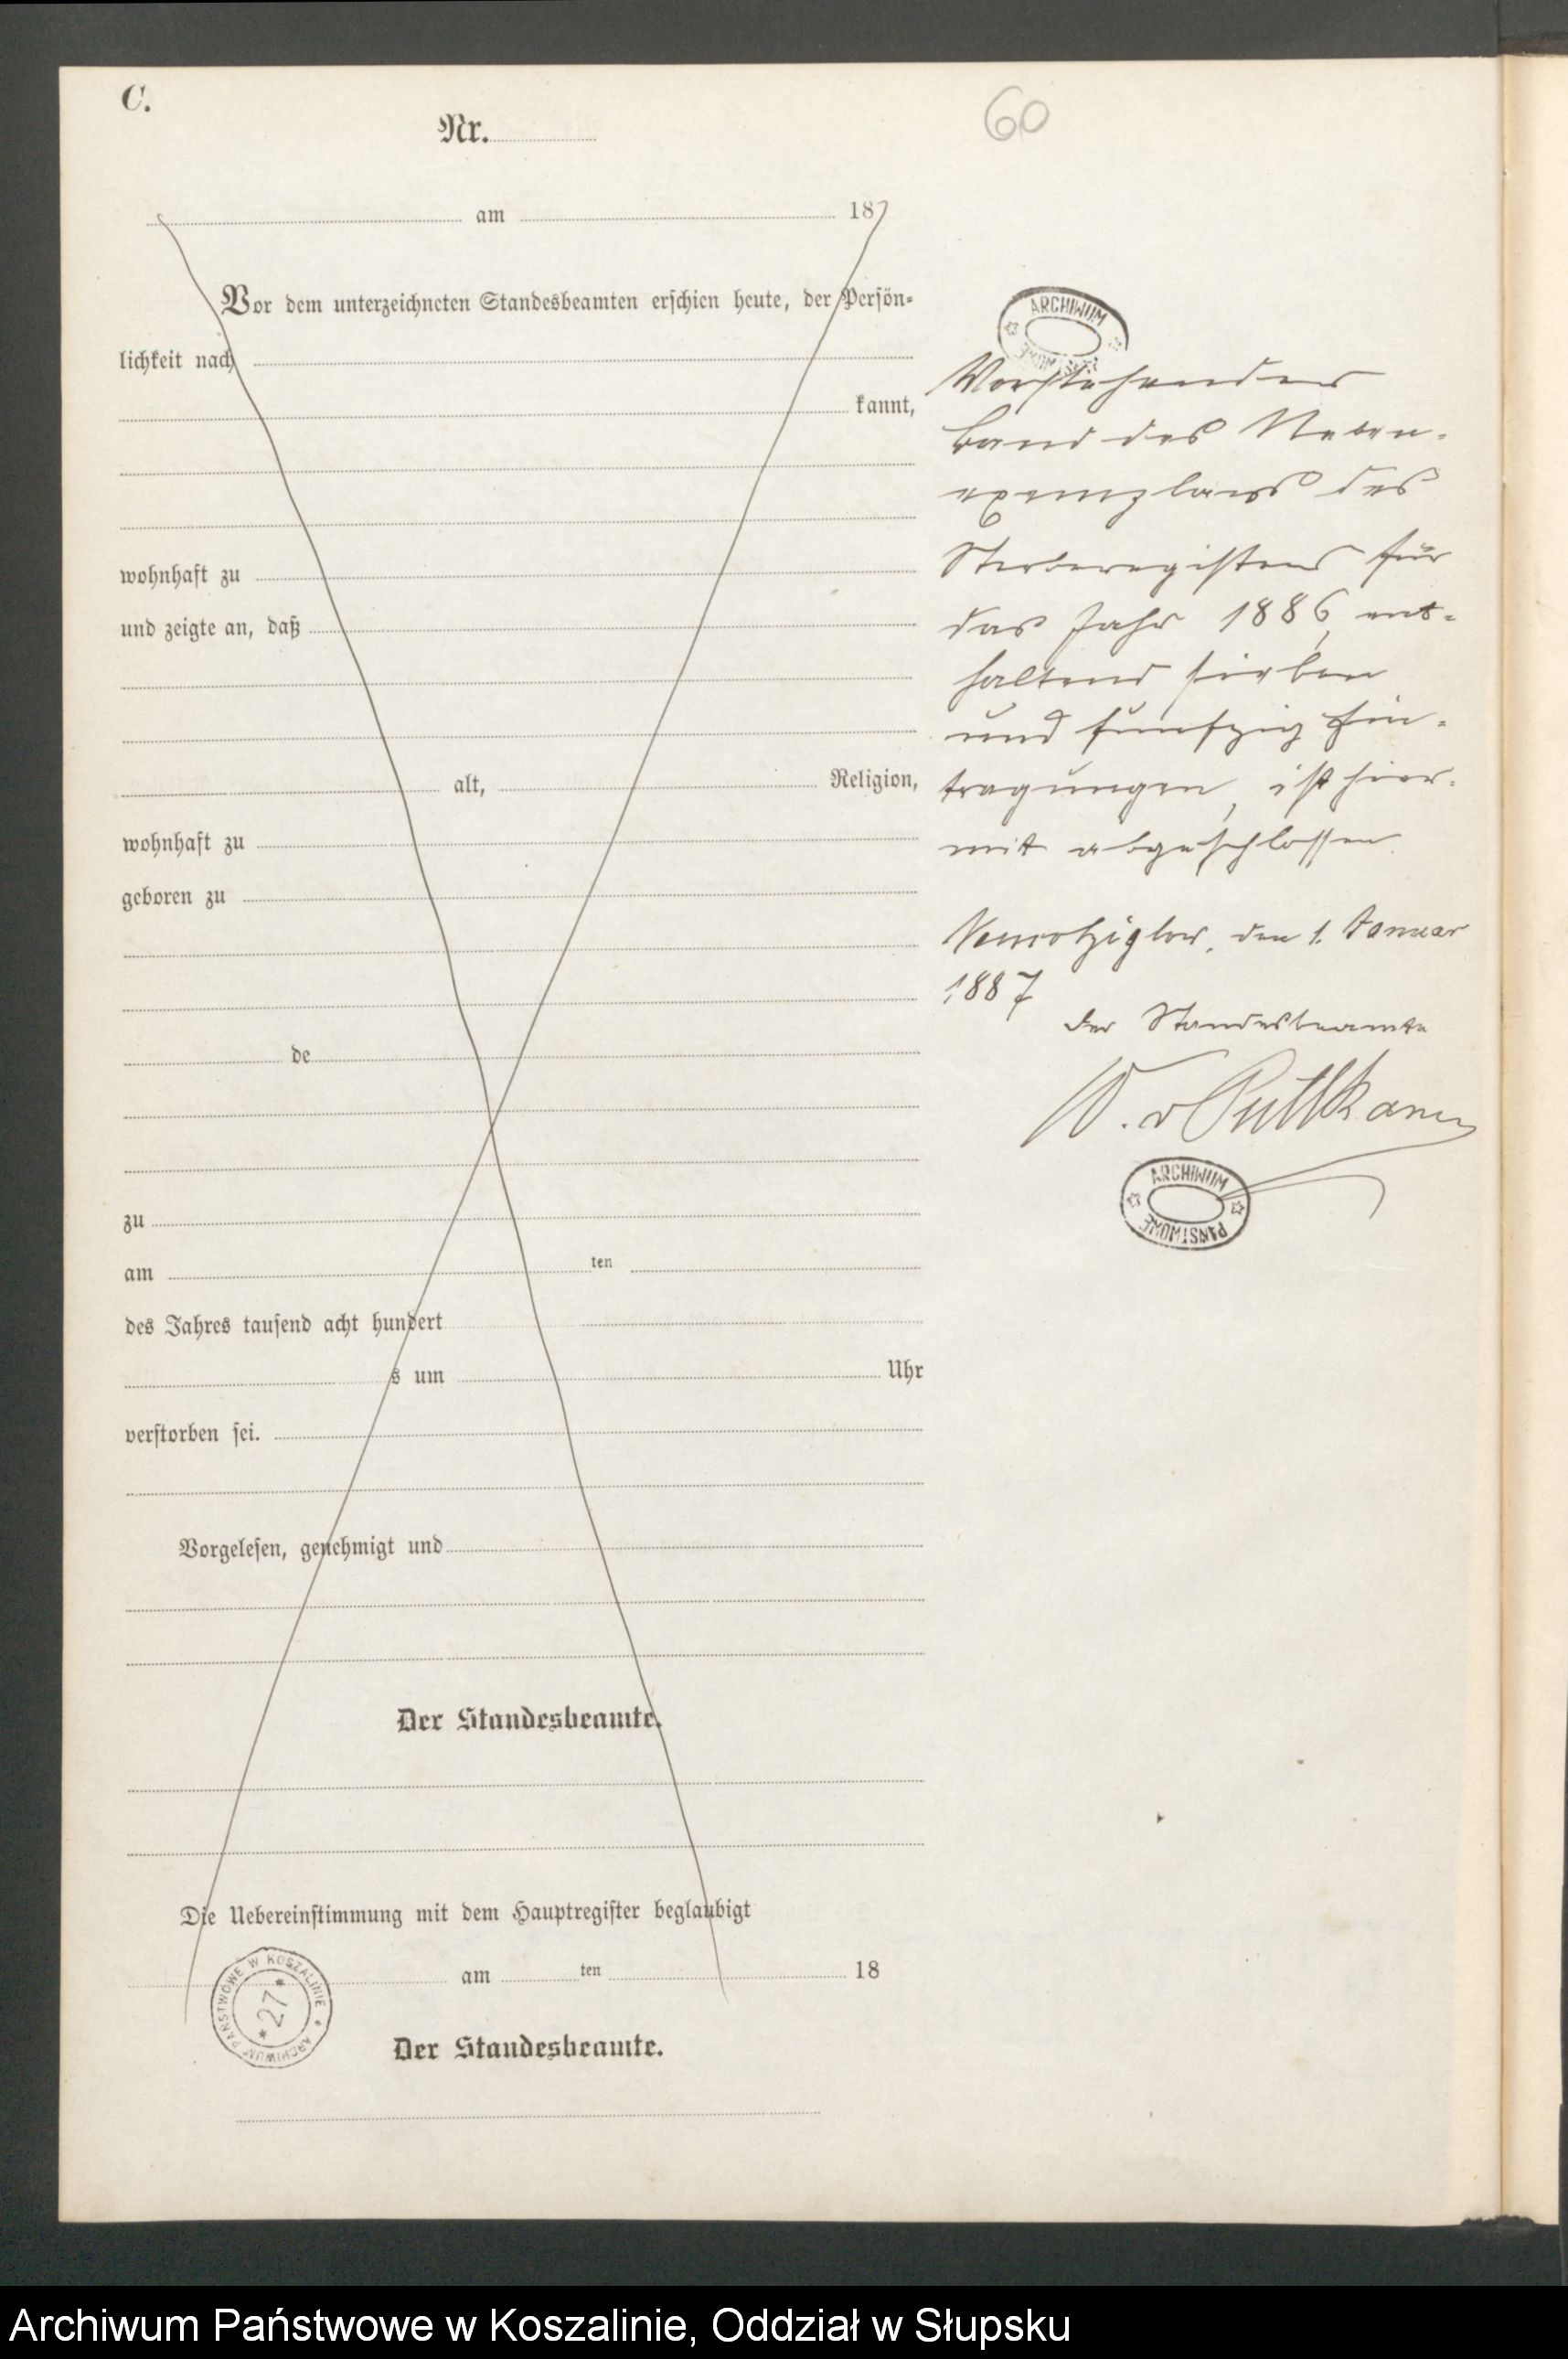 C.
Nr.
60
am 18
Vor dem unterzeichneten Standesbeamten erschien heute, der Persön-
lichkeit nach
kannt,
wohnhaft zu
und zeigte an, daß
alt, Religion,
wohnhaft zu
geboren zu
de
zu
am ten
des Jahres tausend acht hundert
s um Uhr
verstorben sei.
Vorgelesen, genehmigt und
Der Standesbeamte.
Die Uebereinstimmung mit dem Hauptregister beglaubigt
am ten 18
Der Standesbeamte.
ARCHIWUM PAŃSTWOWE W KOSZALINIE
*27*
ARCHIWUM
PAŃSTWOWE
Vorstehender
Band des Neben-
exemplars des
Sterberegisters für
das Jahr 1886, ent-
haltend sieben
und funfzig Ein-
tragungen, ist hier-
mit abgeschlossen.
den 1. Januar
1887
Der Standesbeamte
W. v Puttkamer
ARCHIWUM
PAŃSTWOWE
Archiwum Państwowe w Koszalinie, Oddział w Słupsku